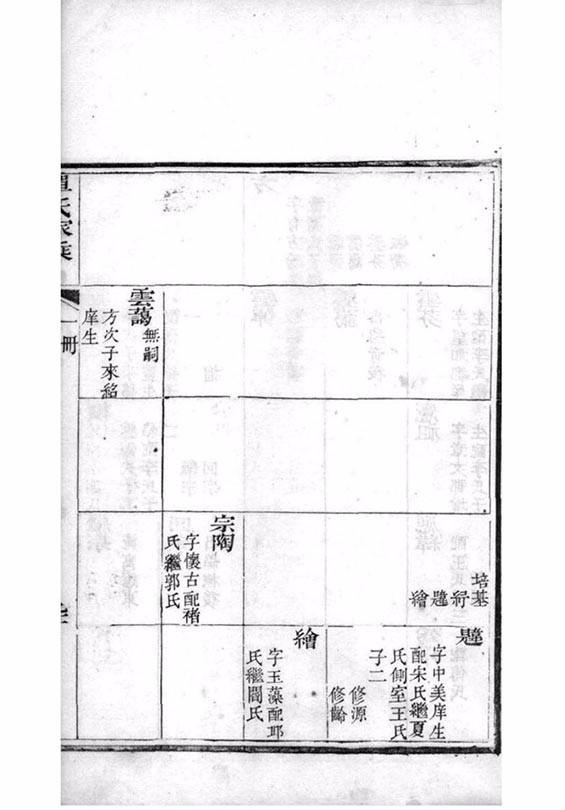 培基
紵
韙
繪
韙
字中美庠生
配宋氏繼夏
氏側室王氏
子二
修源
修齡
繪
字玉藻配邛
氏繼閻氏
宗陶
字懷古配褚
氏繼郭氏
雲藹
無嗣
方次子來紹
庠生
氏家乘
一冊